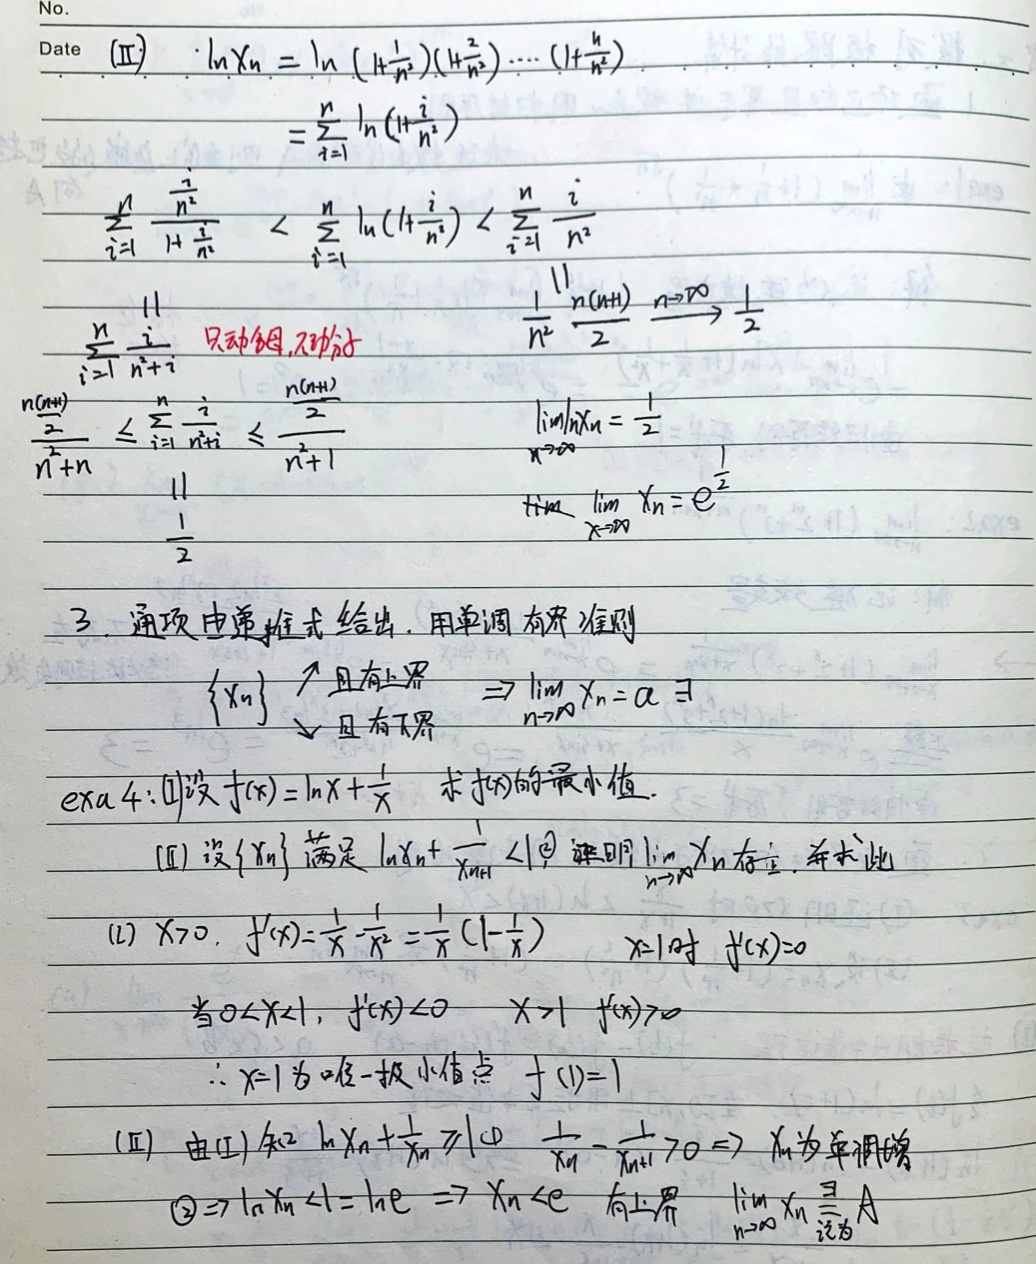 No.
Date (II) ln xₙ = ln (1+1/n²)(1+2/n²)····(1+n/n²)
= Σ_{i=1}^{n} ln(1+i/n²)
Σ_{i=1}^{n} (i/n²)/(1+i/n²) < Σ_{i=1}^{n} ln(1+i/n²) < Σ_{i=1}^{n} i/n²
|| ||
Σ_{i=1}^{n} i/(n²+i) 只动分母,不动分子 1/n² n(n+1)/2 —n→∞→ 1/2
(n(n+1)/2)/(n²+n) ≤ Σ_{i=1}^{n} i/(n²+i) ≤ (n(n+1)/2)/(n²+1) lim_{x→∞} ln xₙ = 1/2
|| lim_{x→∞} xₙ = e^{1/2}
1/2
3. 通项由递推式给出.用单调有界准则
{xₙ} ↗ 且有上界 ⇒ lim_{n→∞} xₙ = a ∃
↘ 且有下界
exa 4:(I)设 f(x) = ln x + 1/x 求 f(x)的最小值.
(II) 设{xₙ} 满足 ln xₙ + 1/xₙ₊₁ < 1② 证明 lim_{n→∞} xₙ 存在.并求此
(I) x>0. f'(x) = 1/x - 1/x² = 1/x (1-1/x) x=1时 f'(x)=0
当0<x<1, f'(x)<0 x>1 f'(x)>0
∴ x=1为唯一极小值点 f(1)=1
(II) 由(I)知 ln xₙ + 1/xₙ ≥ 1① 1/xₙ - 1/xₙ₊₁ > 0 ⇒ xₙ为单调增
②⇒ ln xₙ < 1 = ln e ⇒ xₙ < e 有上界 lim_{n→∞} xₙ ∃ 记为 A